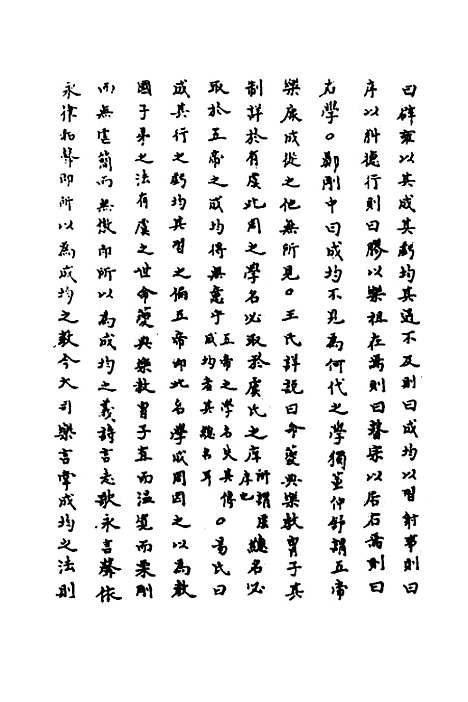 曰辟雍以其成其虧均其過不及則曰成均以習射事則曰
序以糾德行則曰膠以樂祖在焉則曰瞽宗以居右焉則曰
右學○鄭剛中曰成均不見為何代之學獨董仲舒謂五帝
樂康成從之他無所見○王氏詳說曰命夔典樂教胄子其
制詳於有虞此周之學名必取於虞氏之庠所謂虞庠也總名必
取於五帝之成均得無意乎五帝之學名失其傳成均者其總名耳○易氏曰
成其行之虧均其習之偏五帝即此名學成周因之以為教
國子弟之法有虞之世命夔典樂教胄子直而溫寬而栗剛
而無虐簡而無傲即所以為成均之義詩言志歌永言聲依
永律和聲即所以為成均之教今大司樂言掌成均之法則